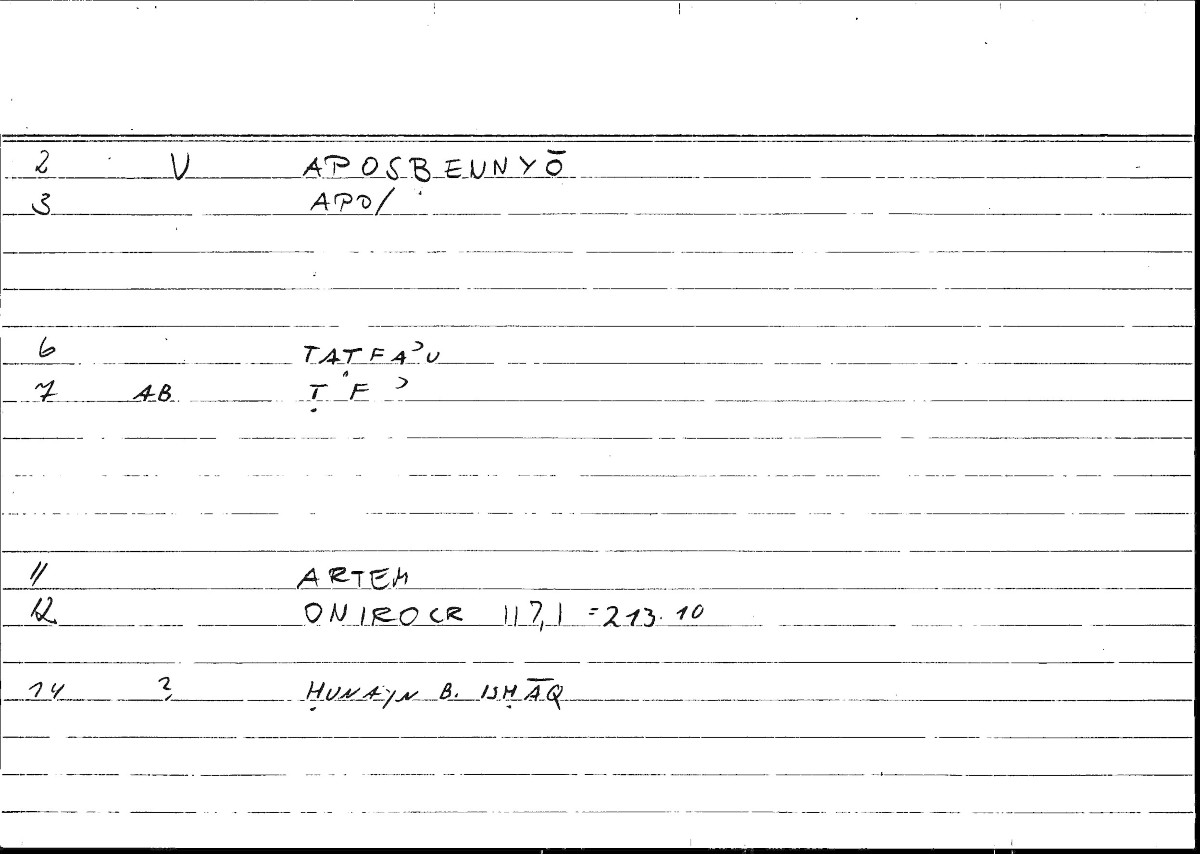 2 V APOSBENNYŌ
3 APO/
6 TATFAʾU
7 AB Ṭ F ʾ
11 ARTEM
12 ONIROCR 117,1 =213.10
14 2 ḤUNAYN B. ISḤĀQ